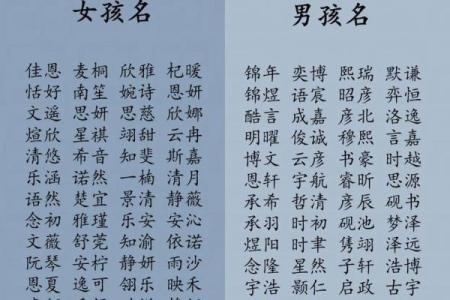 女孩名
佳恩 麦桐 欣雅 杞暖
恬好 南笙 婉诗 恩妍
文遥 思妍 思慈 欣娜
煊欣 星祺 翊甜 云冉
清悠 希音 知斐 斯嘉
乐涵 诺然 一楠 清月
语然 楚宜 景清 静薇
念初 雅瑾 乐安 安沁
文薇 舒莞 知渝 依诺
阮琴 安宁 静妍 雨沫
恩夏 逸可
男孩名
锦年 奕博 熙瑞 默谦
锦煜 语宸 昭彦 弈恒
酷言 成嘉 彦北 洛逸
明曜 俊诚 穆熙 言嘉
博文 云彦 书豪 时越
恩轩 宇航 睿昕 思源
承希 哲清 彦辰 砚书
承羽 时初 砚池 梦泽
煜阳 时聿 隽翊 泽远
念隆 星然 子轩 博志
宇浩 颢仁 启政 古宇